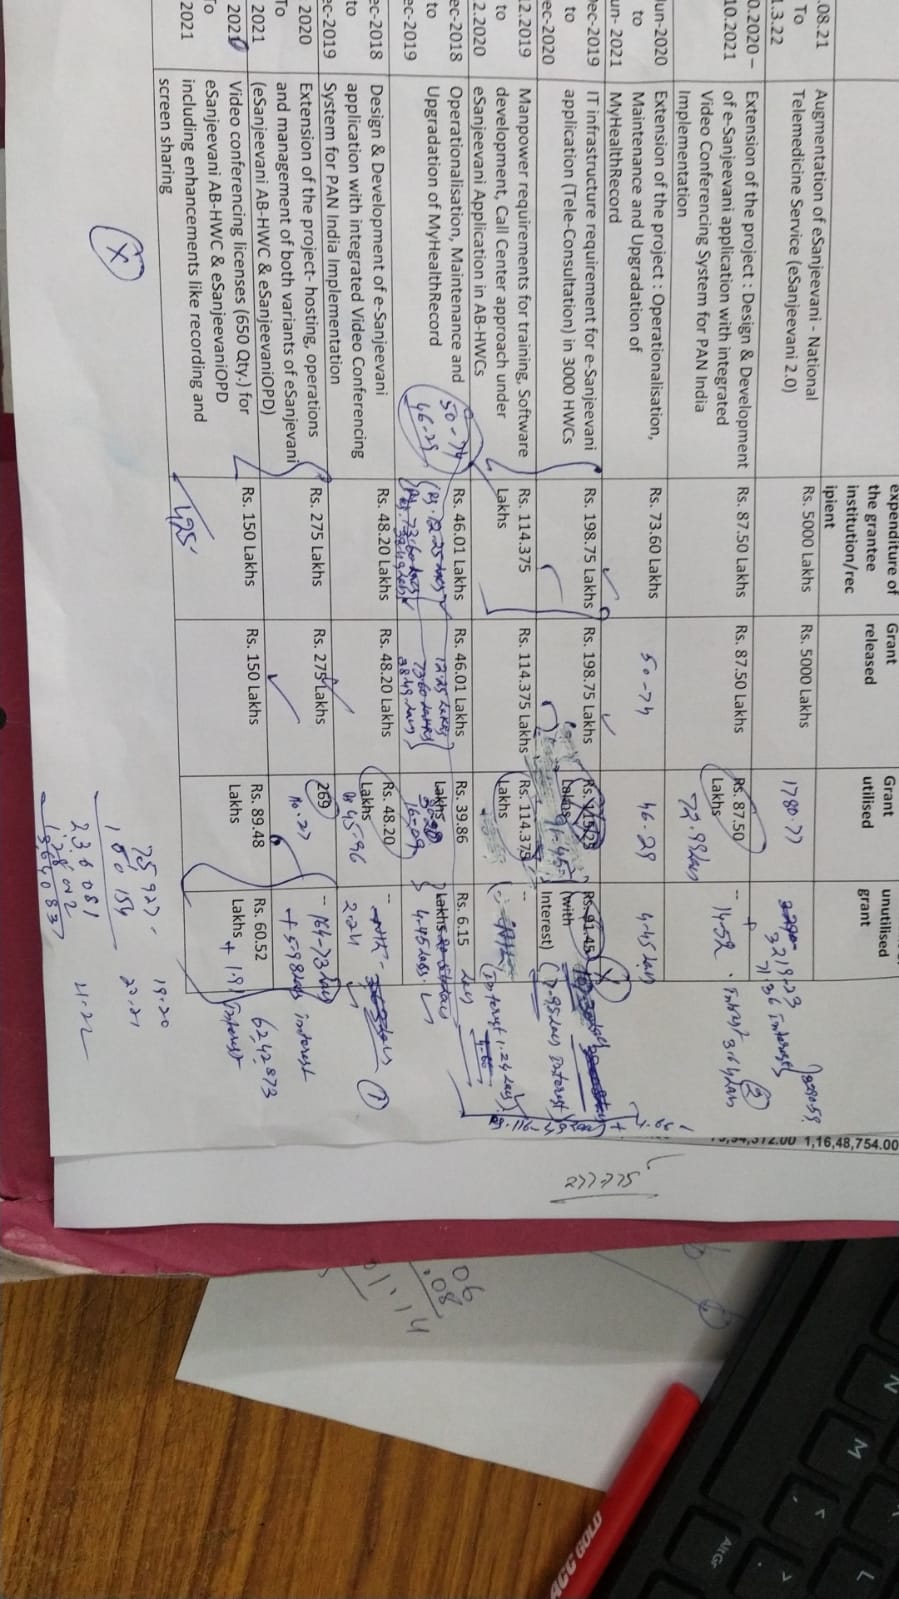 expenditure of the grantee institution/rec ipient
Grant released
Grant utilised
unutilised grant
.08.21 To 1.3.22
Augmentation of eSanjeevani - National Telemedicine Service (eSanjeevani 2.0)
Rs. 5000 Lakhs
Rs. 5000 Lakhs
1780.77
3219-23
71.36 Interest
3290.59
0.2020 – 10.2021
Extension of the project : Design & Development of e-Sanjeevani application with integrated Video Conferencing System for PAN India Implementation
Rs. 87.50 Lakhs
Rs. 87.50 Lakhs
Rs. 87.50 Lakhs
72.99 Lacs
--
14-52
Interest 3.64 Lacs
2
Jun-2020 to un- 2021
Extension of the project : Operationalisation, Maintenance and Upgradation of MyHealthRecord
Rs. 73.60 Lakhs
50-74
46.29
4-45 Lacs
ec-2019 to ec-2020
IT infrastructure requirement for e-Sanjeevani application (Tele-Consultation) in 3000 HWCs
Rs. 198.75 Lakhs
Rs. 198.75 Lakhs
Rs. 115.25 Lakhs
91-45
Rs. 91.45 (with Interest)
X
(7.95 Lacs Interest)
12.2019 to 2.2020
Manpower requirements for training, Software development, Call Center approach under eSanjeevani Application in AB-HWCs
Rs. 114.375 Lakhs
Rs. 114.375 Lakhs
Rs. 114.375 Lakhs
--
(Interest 1.24 Lacs)
ec-2018 to ec-2019
Operationalisation, Maintenance and Upgradation of MyHealthRecord
50-74
46-29
Rs. 46.01 Lakhs
Rs. 12.25 Lacs
Rs. 73.60 Lacs
38.49 Lacs
Rs. 46.01 Lakhs
12.25 Lakhs
73.60 Lakhs
38.49 Lacs
Rs. 39.86 Lakhs
16-09
Rs. 6.15 Lakhs
4-45 Lacs
ec-2018 to ec-2019
Design & Development of e-Sanjeevani application with integrated Video Conferencing System for PAN India Implementation
Rs. 48.20 Lakhs
Rs. 48.20 Lakhs
Rs. 48.20 Lakhs
Rs 45-96
--
Nil
2.24
1
2020 To 2021
Extension of the project- hosting, operations and management of both variants of eSanjevani (eSanjeevani AB-HWC & eSanjeevaniOPD)
Rs. 275 Lakhs
Rs. 275 Lakhs
269
110.27
--
164-73 Lacs
+ 5.98 Lacs interest
2021 To 2021
Video conferencing licenses (650 Qty.) for eSanjeevani AB-HWC & eSanjeevaniOPD including enhancements like recording and screen sharing
Rs. 150 Lakhs
Rs. 150 Lakhs
Rs. 89.48 Lakhs
Rs. 60.52 Lakhs
+ 1.91 Interest
6242873
425
X
75,927-
19-20
160 154
20-21
236 081
128 002
21-22
364083
1,16,48,754.00
277235
06
.08
1.14
N
M
L
<
,
>
.
Alt Gr